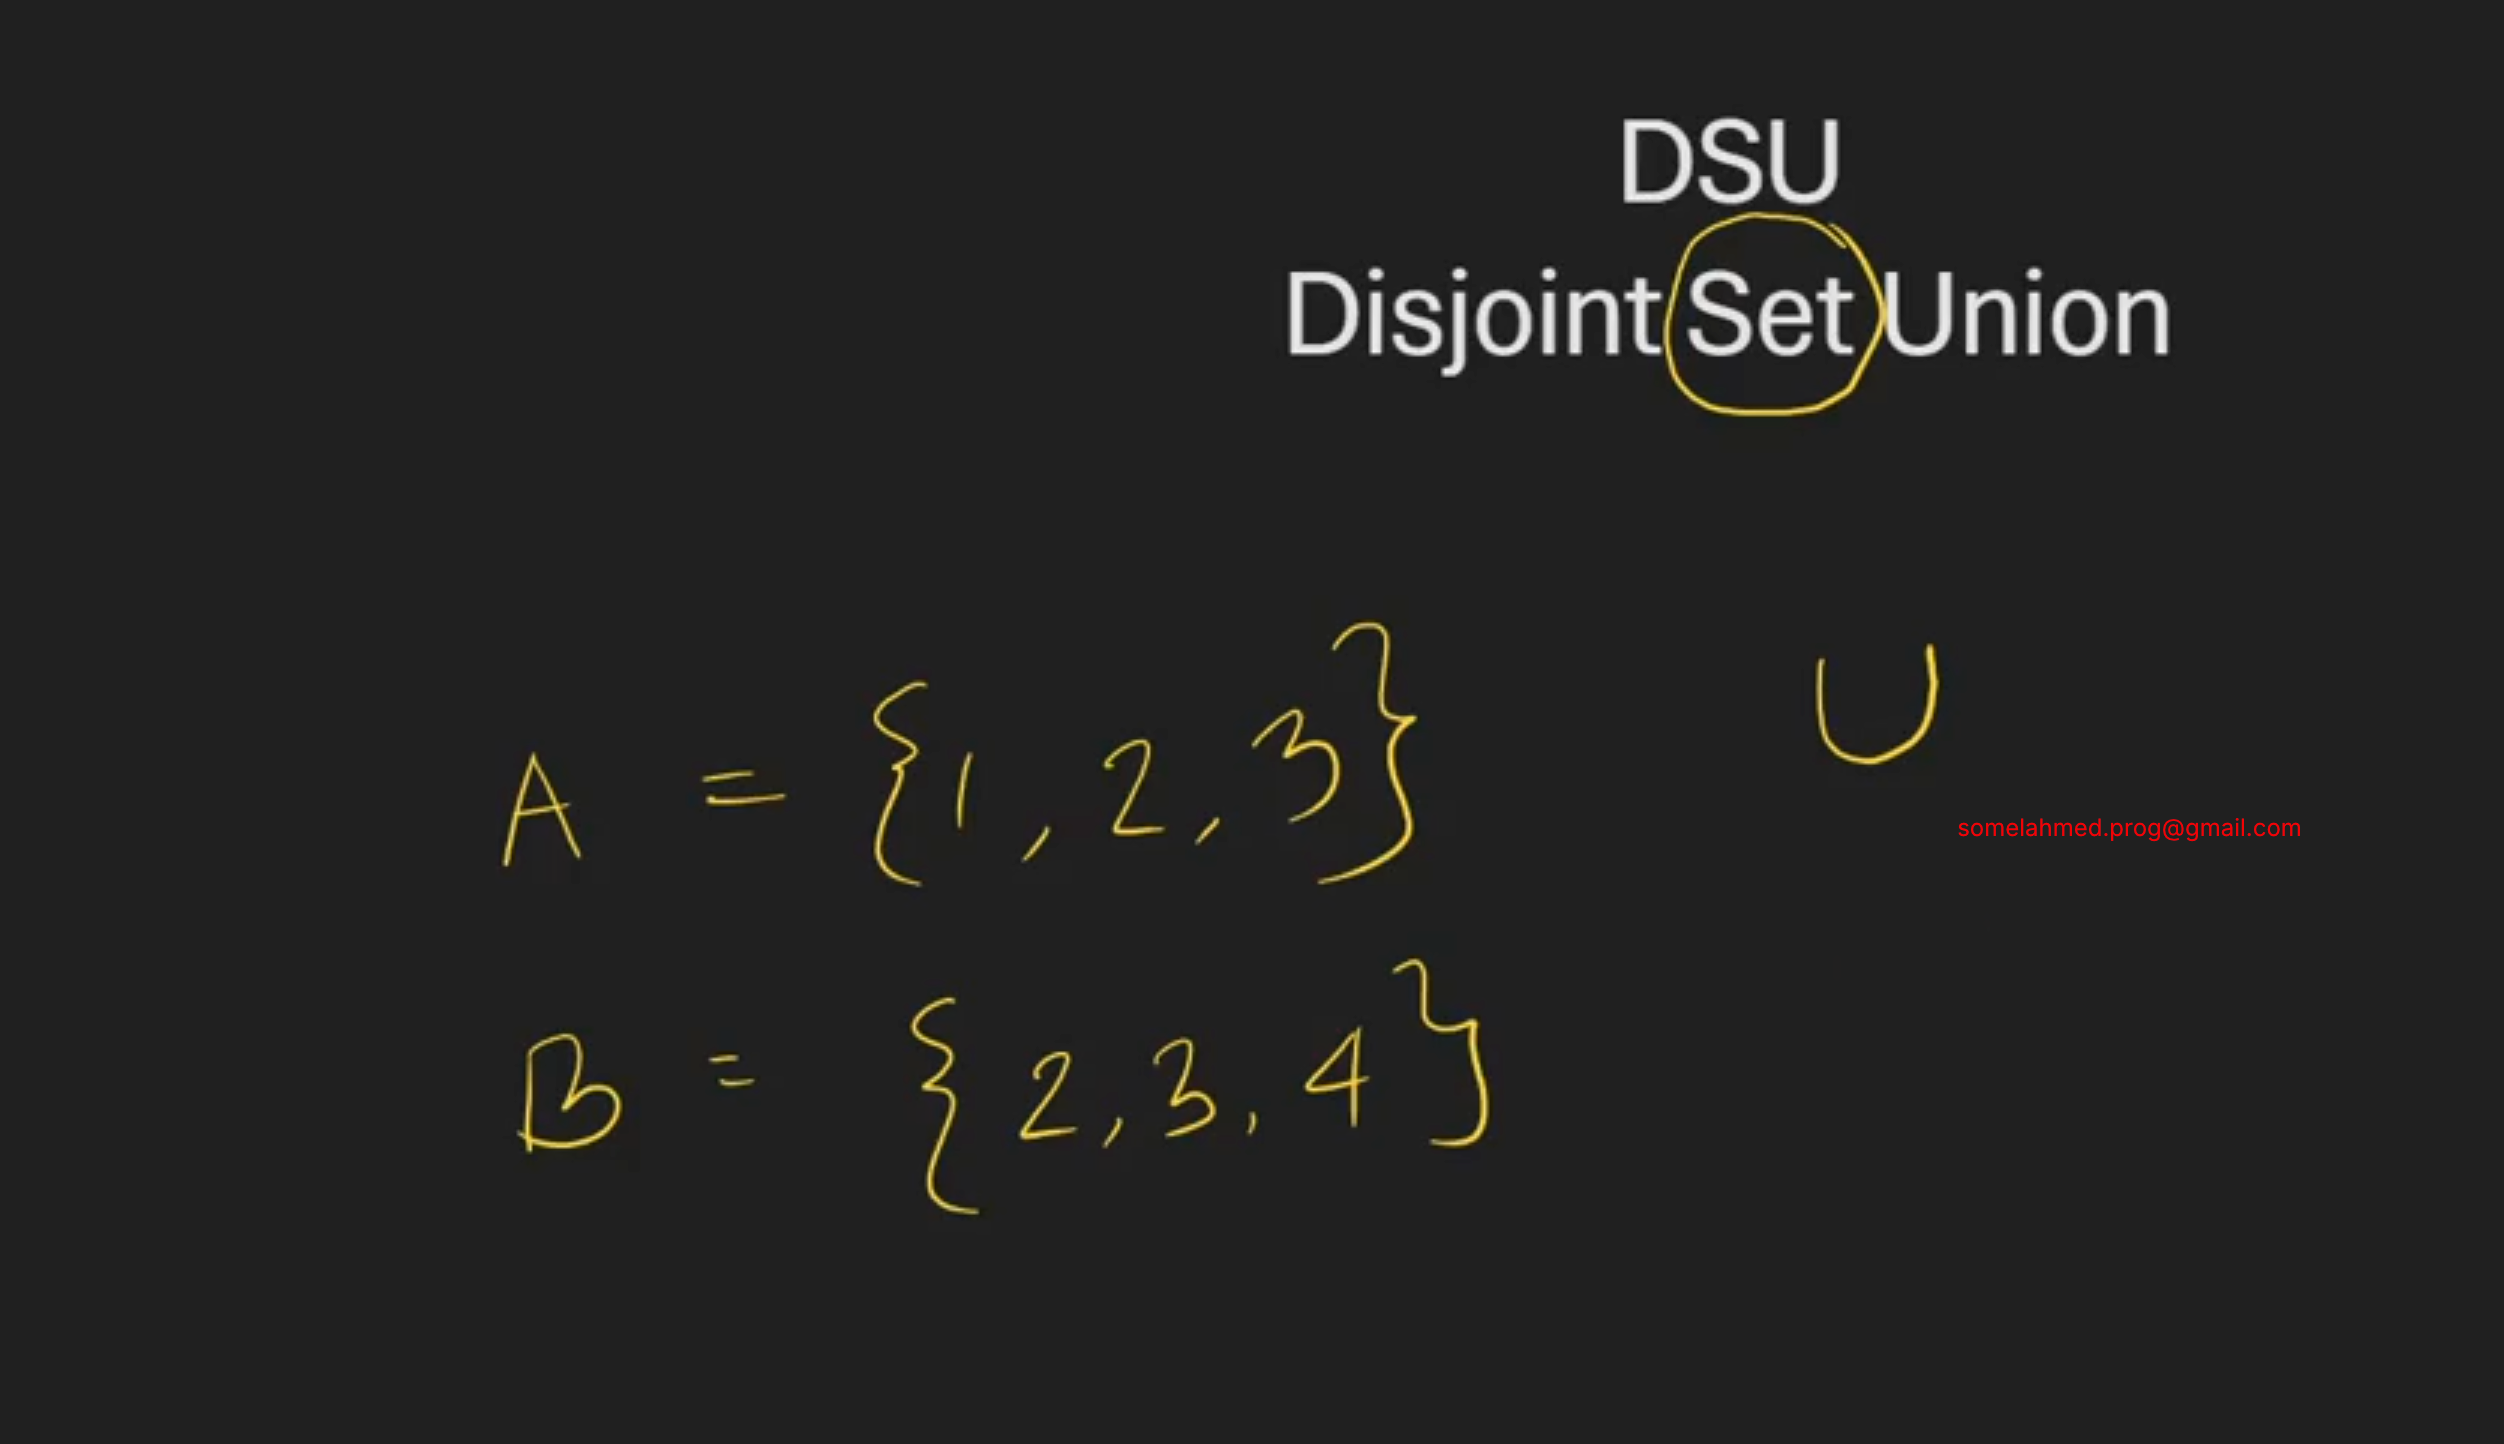 DSU
Disjoint Set Union
A = {1, 2, 3}
U
somelahmed.prog@gmail.com
B = {2, 3, 4}